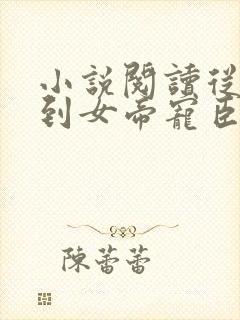 小說閱讀從
到女帝寵臣
陳蕾蕾